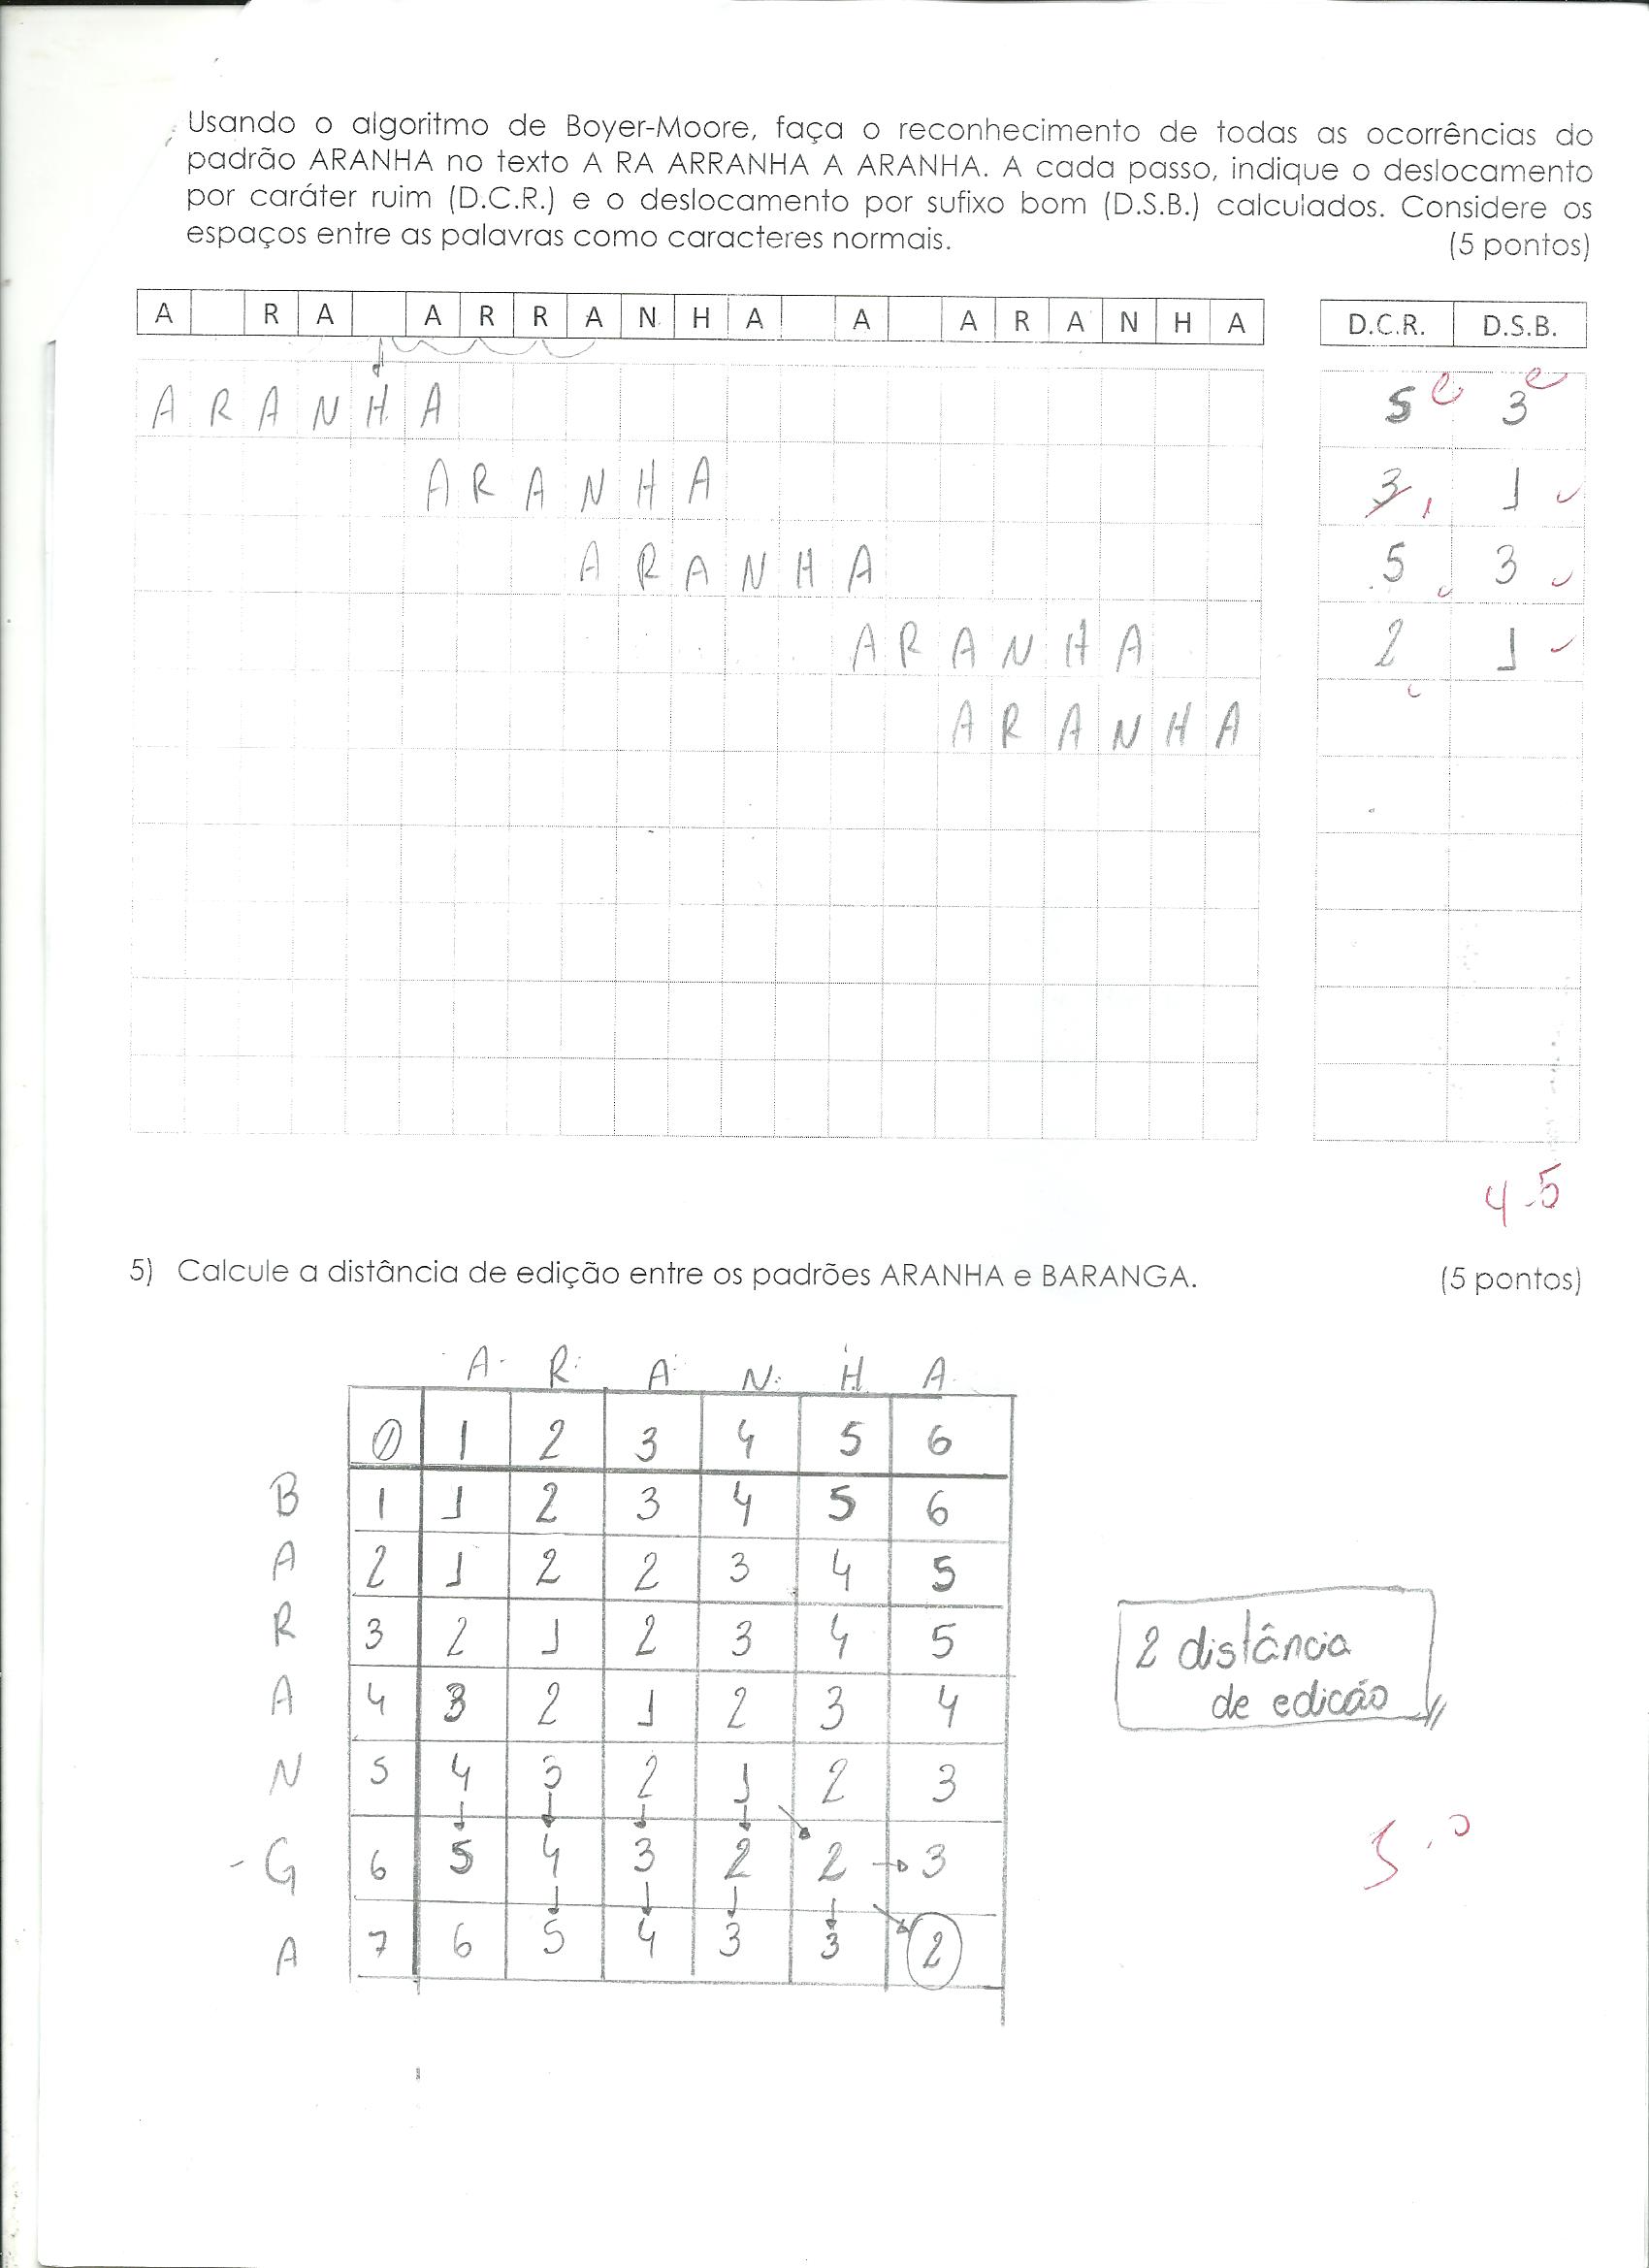 Usando o algoritmo de Boyer-Moore, faça o reconhecimento de todas as ocorrências do
padrão ARANHA no texto A RA ARRANHA A ARANHA. A cada passo, indique o deslocamento
por caráter ruim (D.C.R.) e o deslocamento por sufixo bom (D.S.B.) calculados. Considere os
espaços entre as palavras como caracteres normais. (5 pontos)
A R A A R R A N H A A A R A N H A D.C.R. D.S.B.
A R A N H A 5 3
A R A N H A 3 1 1
A R A N H A 5 3
A R A N H A 2 1
A R A N H A
4.5
5) Calcule a distância de edição entre os padrões ARANHA e BARANGA. (5 pontos)
A R A N H A
0 1 2 3 4 5 6
B 1 1 2 3 4 5 6
A 2 1 2 2 3 4 5
R 3 2 1 2 3 4 5
A 4 3 2 1 2 3 4
N 5 4 3 2 1 2 3
- G 6 5 4 3 2 2 3
A 7 6 5 4 3 3 2
2 distância
de edicão
5.0